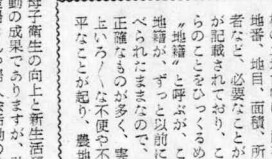 地番、地目、面積、所
者など、必要なことが
が記載されており、こ
らのことをひっくるめ
〝地籍〟と呼ぶが、こ
地籍が、ずっと以前に
べられたままなので、
正確なものが多く、実
上いろ〳〵な不便や不
平なことが起り、農地
母子衛生の向上と新生活
動の成果でありますが、